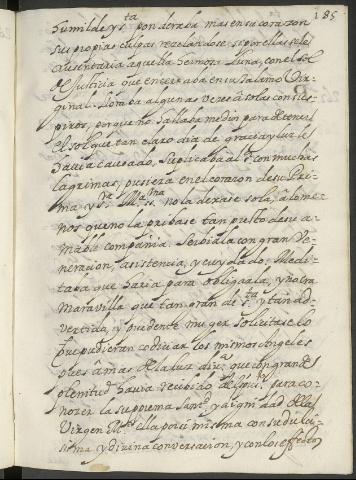 185
humilde y s.ta ponderaba mas en su corazon
sus propias culpas rezelandose si por ellas se le
ausentaria aquella hermosa Luna, con el sol
de Justicia que encerraba en su talamo Vir-
ginal. Lloraba algunas vezes á solas con sus-
piros, porque no hallaba medio para detener
el sol que tan claro dia de gracia y luz le
havia causado. Suplicaba al s.r con muchas
lagrimas, pusiera en el corazon de su Pri-
ma y s.ra M.a s.ma no la dexase sola, á lo me-
nos que no la pribase tan presto de su a-
mable compañia. Serbiala con gran Ve-
neracion, asistencia, y cuydado. Medi-
taba que haria para obligarla, y no era
Maravilla que tan gran de s.ta y tan ad-
vertida, y prudente muger solicitase lo
que pudieran codiciar los mismos Angeles
pues á mas de la luz div.a que con grande
plenitud havia recibido del spir.u para co-
nozer la suprema Sant.d y dignidad de la
Virgen M.e ella por si misma con su dulci-
sima y divina conversacion, y con los effectos